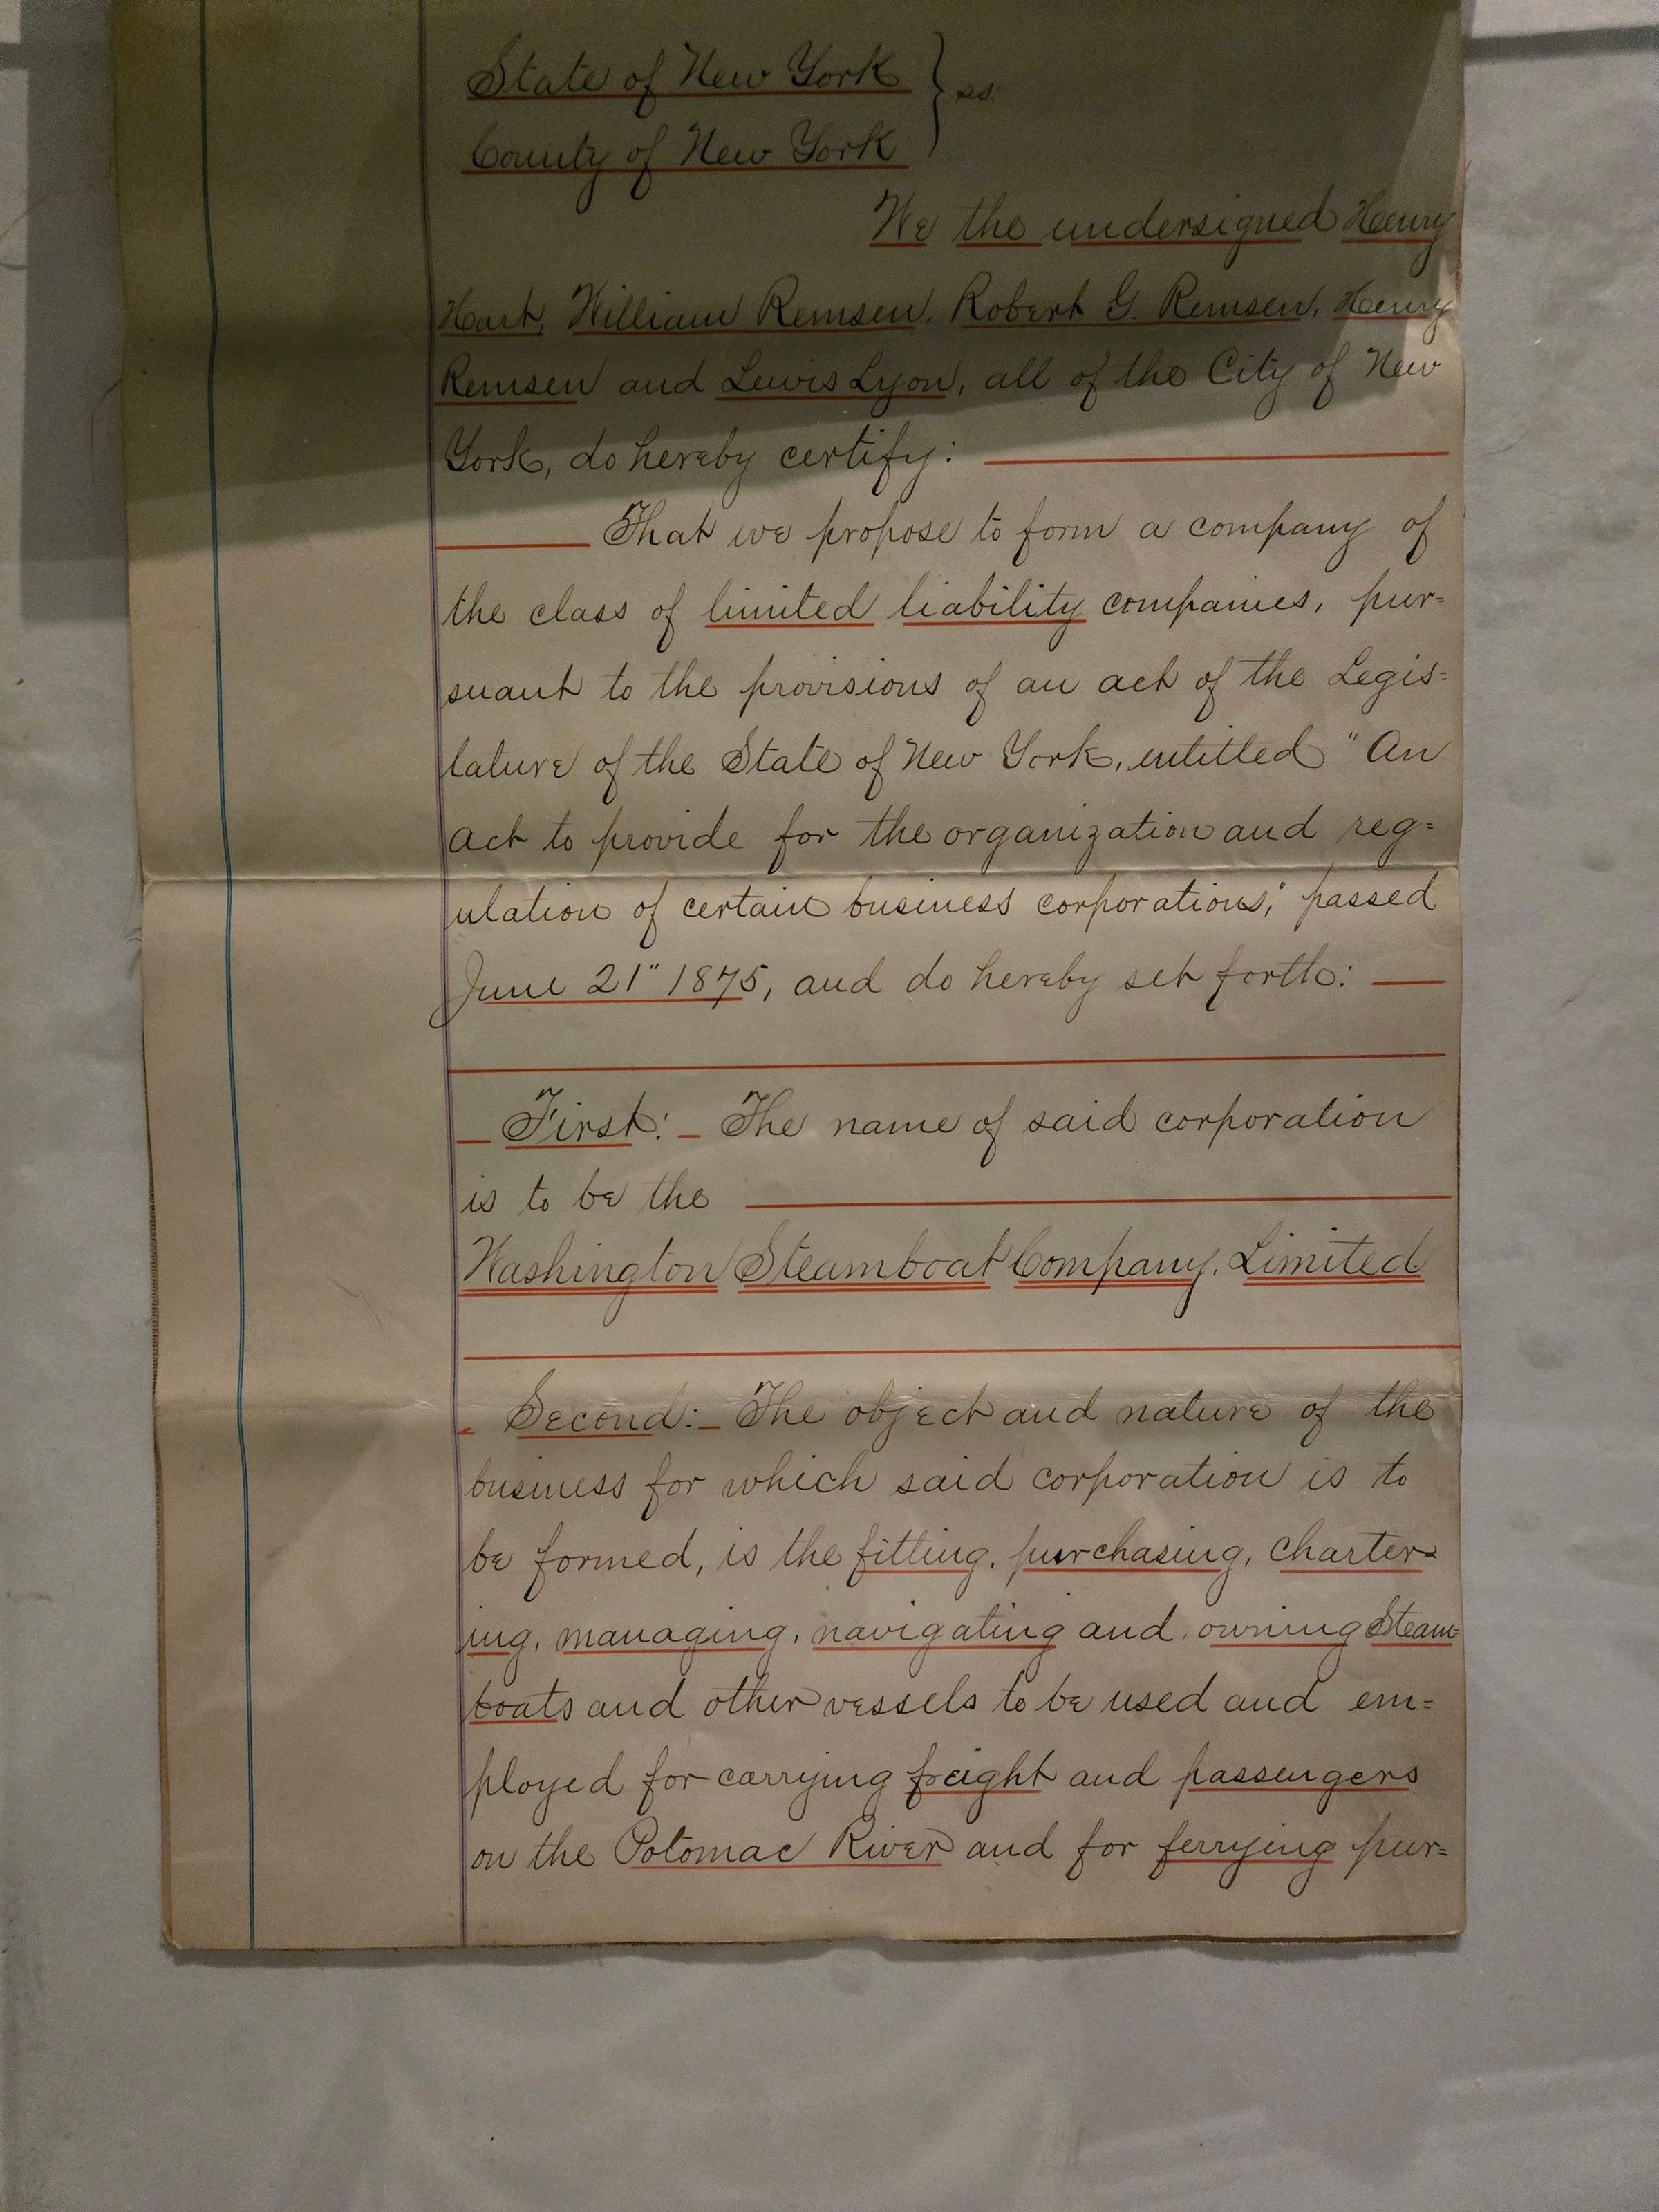 State of New York } ss.
County of New York
We the undersigned Henry
Hart, William Remsen, Robert G. Remsen, Henry
Remsen and Lewis Lyon, all of the City of New
York, do hereby certify:
That we propose to form a company of
the class of limited liability companies, pur=
suant to the provisions of an act of the Legis=
lature of the State of New York, entitled "An
act to provide for the organization and reg=
ulation of certain business corporations," passed
June 21" 1875, and do hereby set forth:
First: The name of said corporation
is to be the
Washington Steamboat Company, Limited
Second: The object and nature of the
business for which said corporation is to
be formed, is the fitting, purchasing, charter=
ing, managing, navigating and owning Steam=
boats and other vessels to be used and em=
ployed for carrying freight and passengers
on the Potomac River and for ferrying pur=